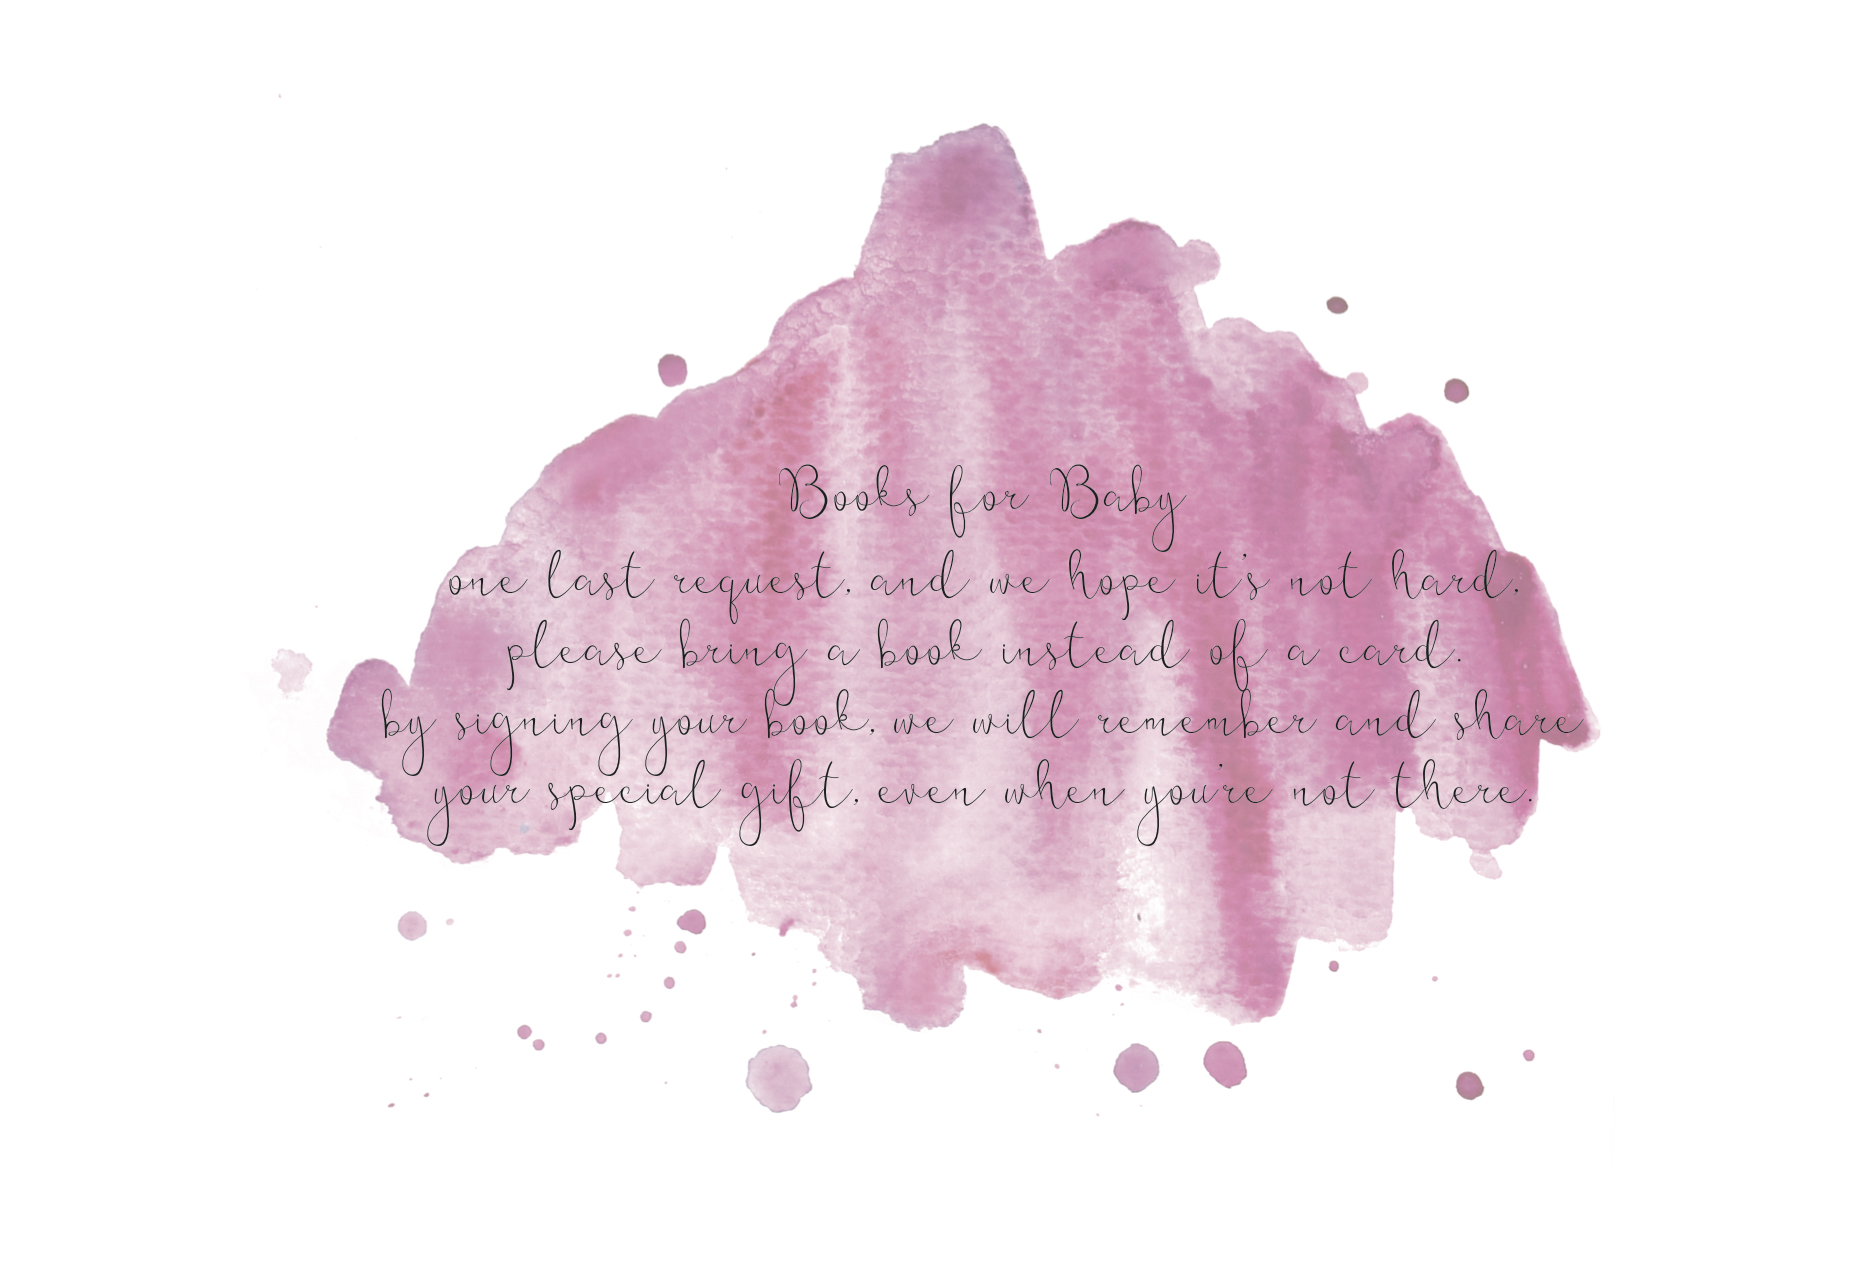 Books for Baby
one last request, and we hope it's not hard,
please bring a book instead of a card.
by signing your book, we will remember and share
your special gift, even when you're not there.